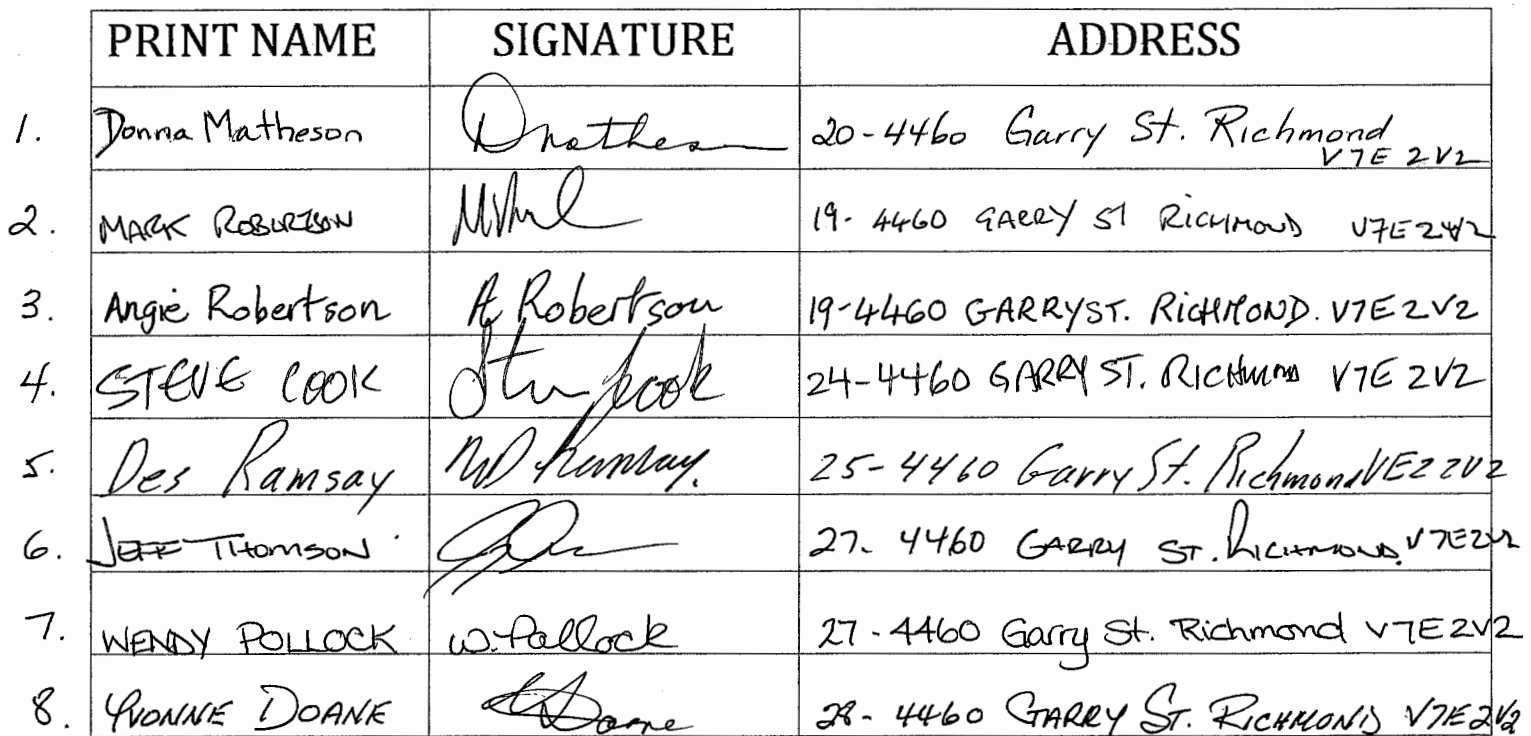 PRINT NAME SIGNATURE ADDRESS
1. Donna Matheson Dmathes 20-4460 Garry St. Richmond V7E 2V2
2. MARK ROBERTSON 19- 4460 GARRY ST RICHMOND V7E 2V2
3. Angie Robertson A Robertson 19-4460 GARRY ST. RICHMOND. V7E 2V2
4. STEVE COOK Steve Cook 24-4460 GARRY ST. RICHMOND V7E 2V2
5. Des Ramsay Ramsay. 25-4460 Garry St. Richmond VE2 2V2
6. JEFF THOMSON 27- 4460 GARRY ST. RICHMOND. V7E2V2
7. WENDY POLLOCK W. Pollock 27-4460 Garry St. Richmond V7E2V2
8. YVONNE DOANE Doane 28- 4460 GARRY ST. RICHMOND V7E2V2